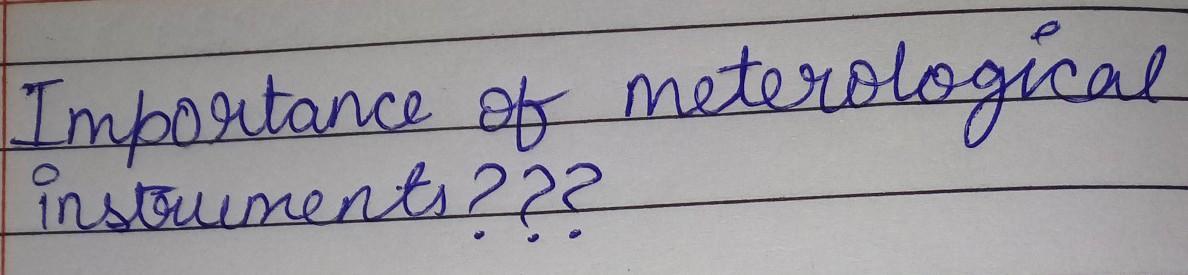 Importance of meterological
instruments???